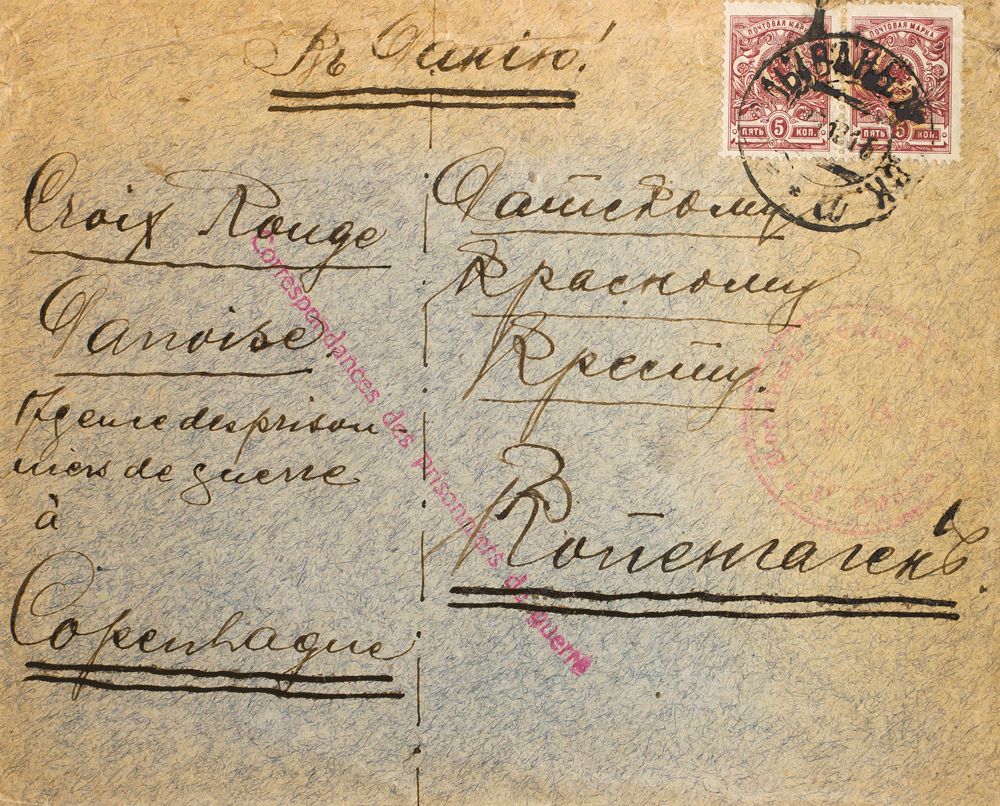 Въ Данію!
ПОЧТОВАЯ МАРКА
ПЯТЬ 5 КОП.
ПОЧТОВАЯ МАРКА
ПЯТЬ 5 КОП.
Croix Rouge
Danoise.
Agence des prison-
niers de guerre
à
Copenhague
Датскому
Красному
Кресту.
Копенгагенъ.
Correspondances des prisonniers de guerre